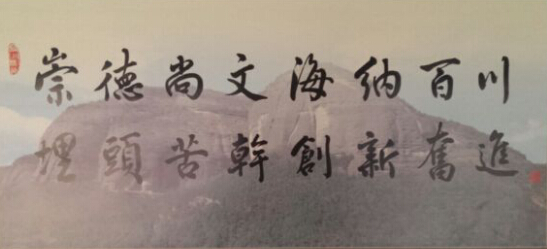 崇德尚文海纳百川
埋頭苦幹創新奮進